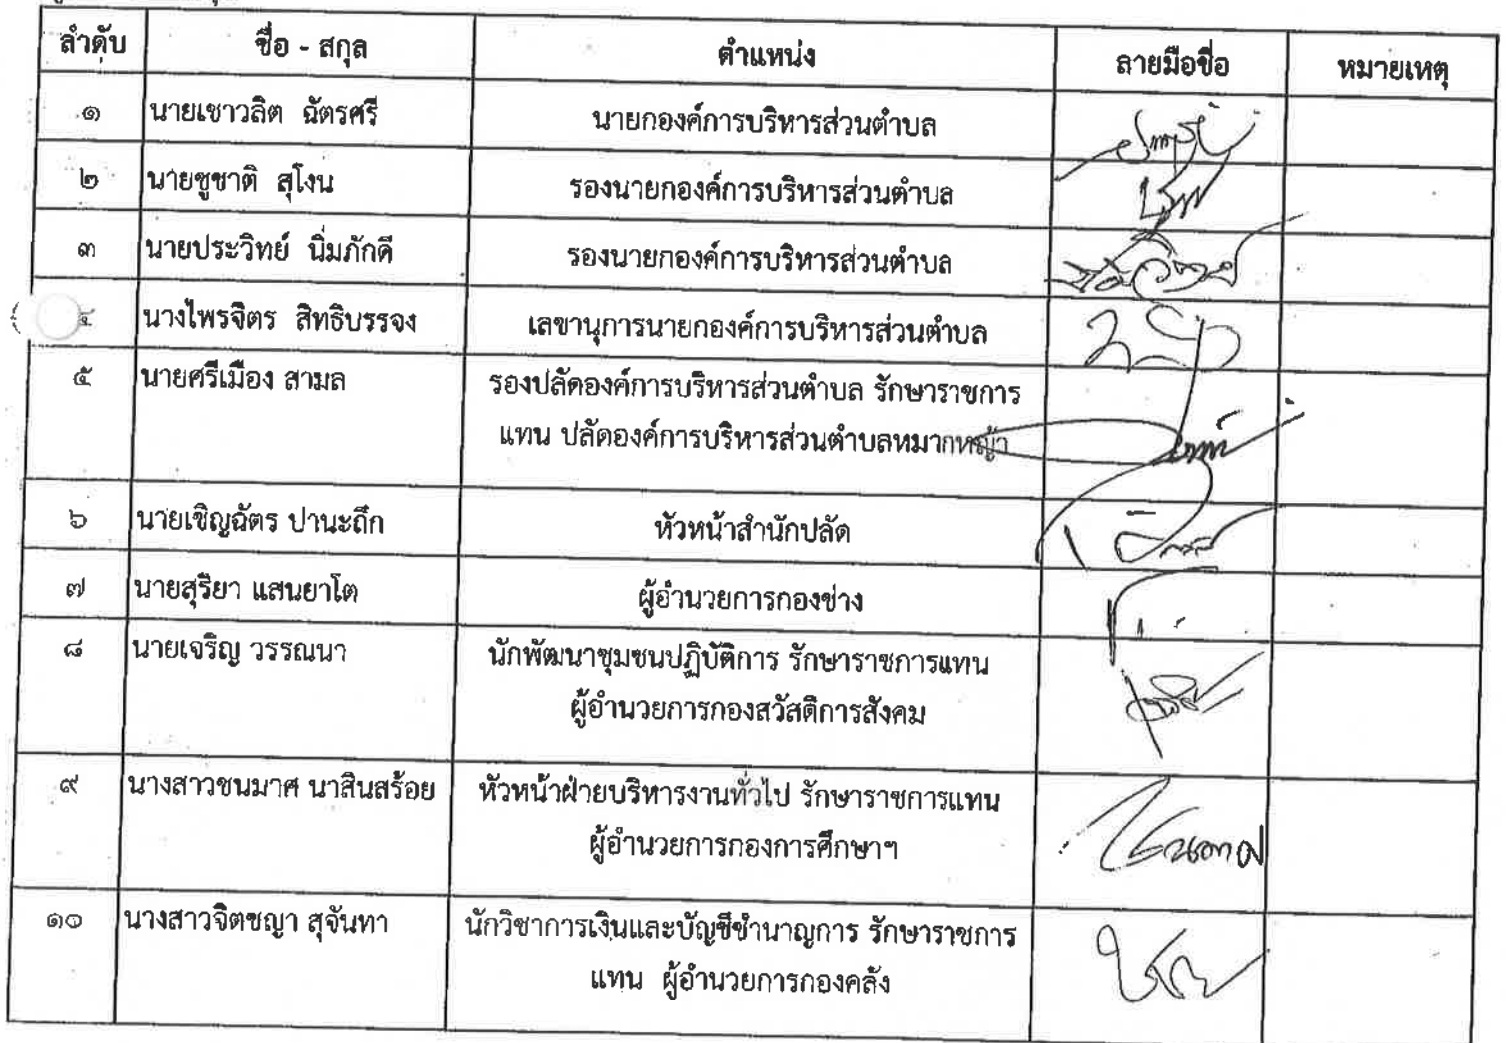 ลำดับ ชื่อ - สกุล ตำแหน่ง ลายมือชื่อ หมายเหตุ
๑ นายเชาวลิต ฉัตรศรี นายกองค์การบริหารส่วนตำบล
๒ นายชูชาติ สุโงน รองนายกองค์การบริหารส่วนตำบล
๓ นายประวิทย์ นิ่มภักดี รองนายกองค์การบริหารส่วนตำบล
๔ นางไพรจิตร สิทธิบรรจง เลขานุการนายกองค์การบริหารส่วนตำบล
๕ นายศรีเมือง สามล รองปลัดองค์การบริหารส่วนตำบล รักษาราชการ
แทน ปลัดองค์การบริหารส่วนตำบลหมากหญ้า
๖ นายเชิญฉัตร ปานะถึก หัวหน้าสำนักปลัด
๗ นายสุริยา แสนยาโต ผู้อำนวยการกองช่าง
๘ นายเจริญ วรรณนา นักพัฒนาชุมชนปฏิบัติการ รักษาราชการแทน
ผู้อำนวยการกองสวัสดิการสังคม
๙ นางสาวชนมาศ นาสินสร้อย หัวหน้าฝ่ายบริหารงานทั่วไป รักษาราชการแทน
ผู้อำนวยการกองการศึกษาฯ
๑๐ นางสาวจิตชญา สุจันทา นักวิชาการเงินและบัญชีชำนาญการ รักษาราชการ
แทน ผู้อำนวยการกองคลัง